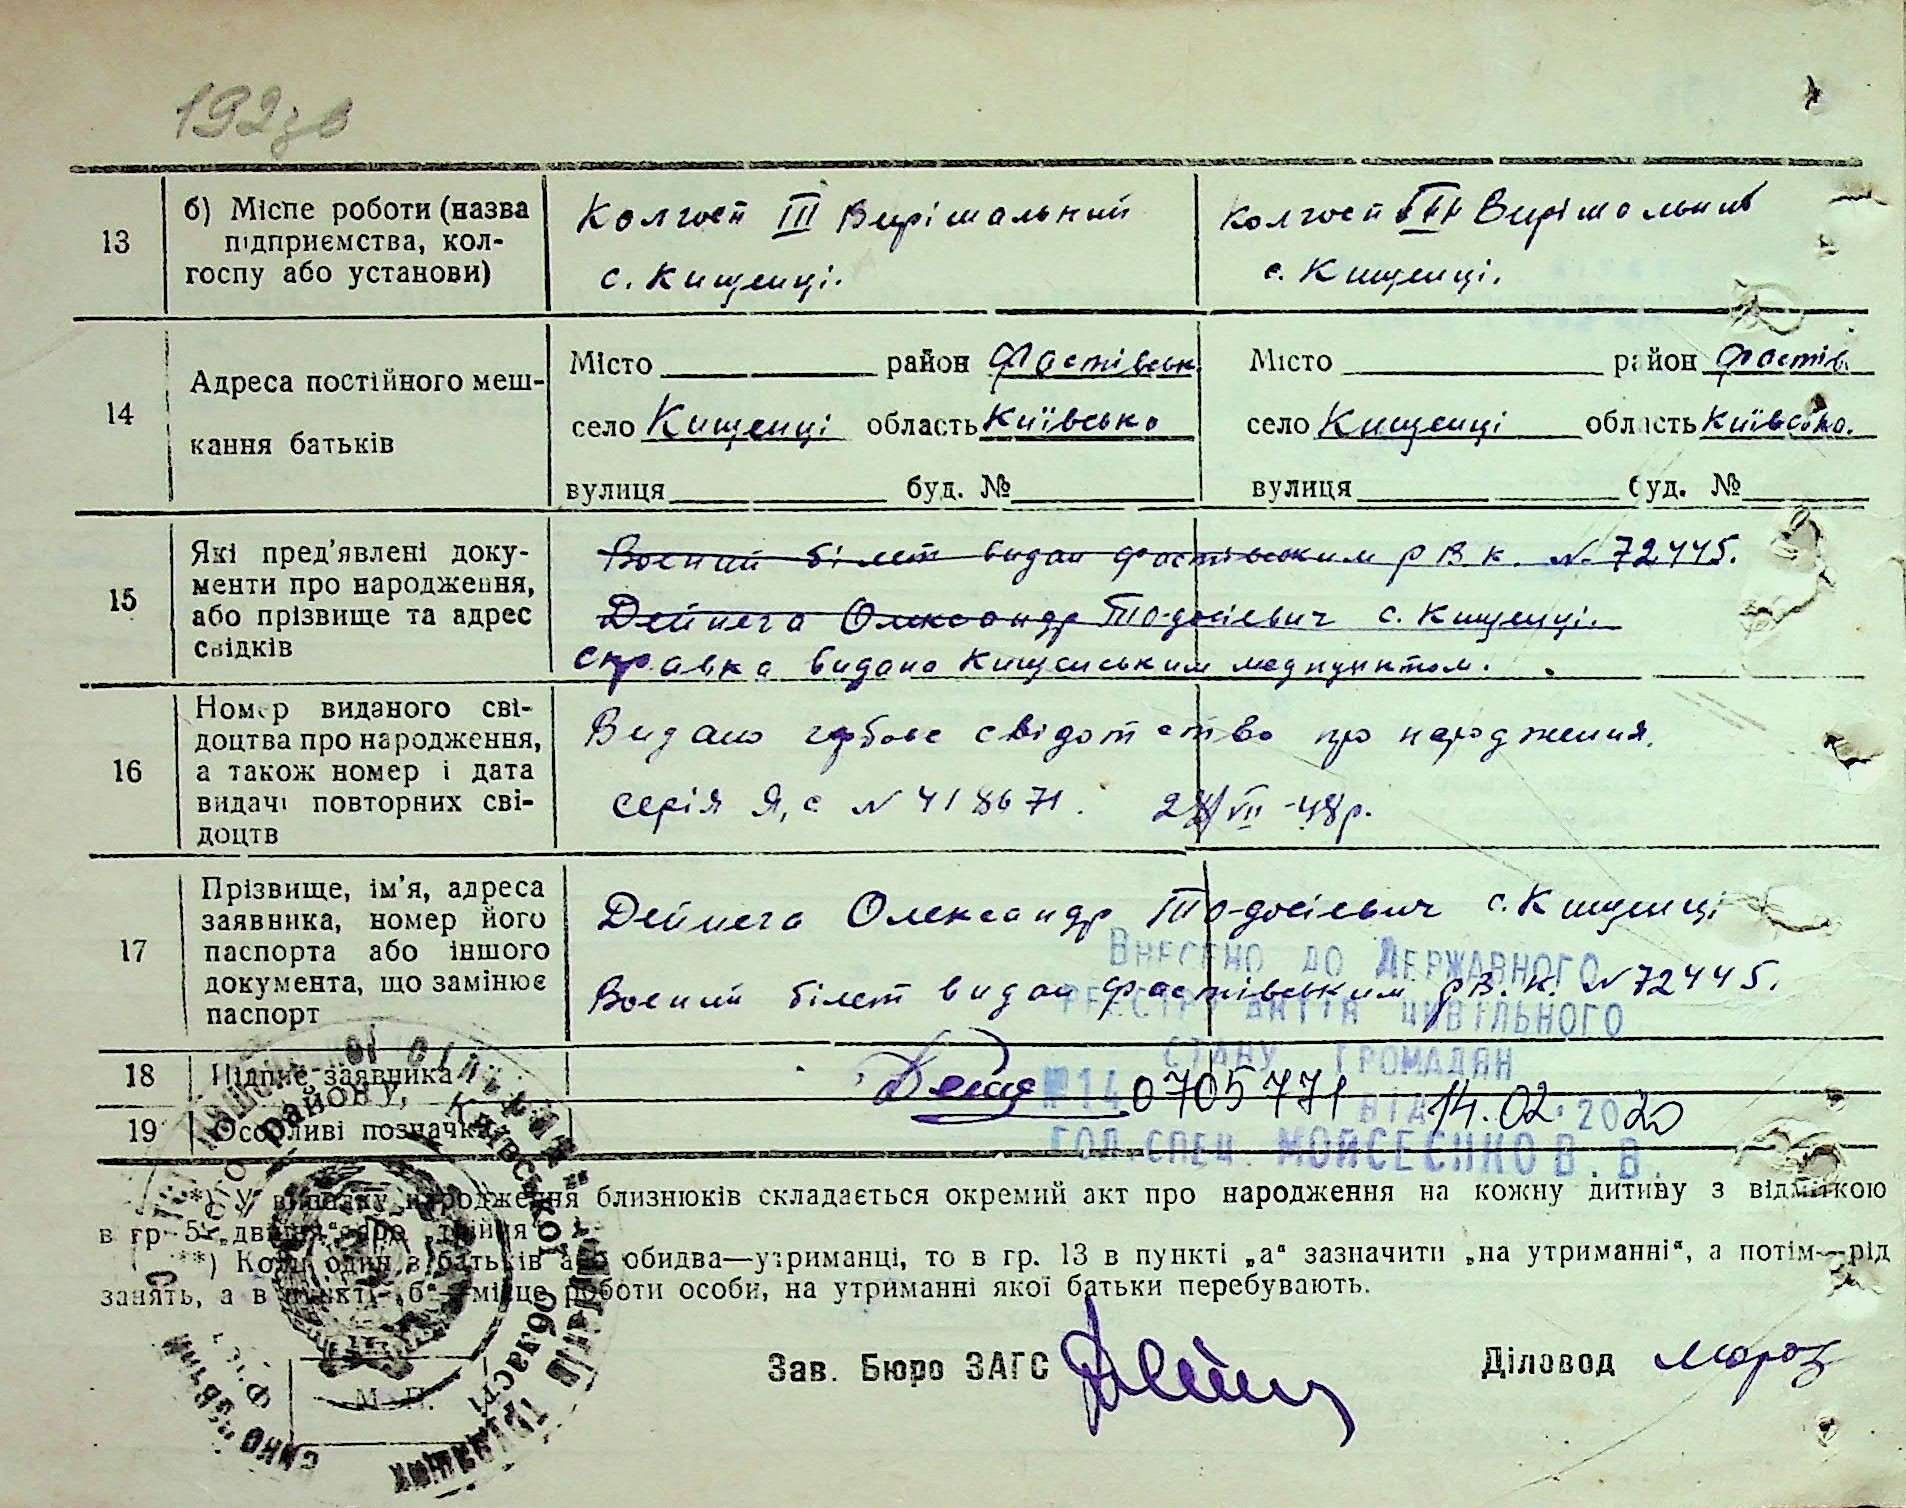 192зв
13
б) Місце роботи (назва
підприємства, кол-
госпу або установи)
Колгосп III Вирішальний
с. Кищенці.
колгосп III Вирішальний
с. Кищенці.
14
Адреса постійного меш-
кання батьків
Місто район Фастівськ
село Кищенці область Київсько
вулиця буд. №
Місто район Фастів.
село Кищенці область Київсько.
вулиця буд. №
15
Які пред'явлені доку-
менти про народження,
або прізвище та адрес
свідків
Воєний білет видан Фастівським р В к. N. 72445.
Дейнега Олександр Тодосієвич с. Кищенці.
Справка видана Кищенським медпунктом.
16
Номер виданого сві-
доцтва про народження,
а також номер і дата
видачі повторних сві-
доцтв
Видано гербове свідотство про народження.
серія Я, с N 418671. 28/VII-48р.
17
Прізвище, ім'я, адреса
заявника, номер його
паспорта або іншого
документа, що замінює
паспорт
Дейнега Олександр Тодосієвич с. Кищенці
Воєний білет видан Фастівським р В. К. N 72445.
Внесено до Державного
реєстру актів цивільного
стану громадян
№ 14 0705771 від 14.02.2020
гол. спец. Мойсеєнко В. В.
18
Підпис заявника
19
Особливі позначки
*) У випадку народження близнюків складається окремий акт про народження на кожну дитину з відміткою
в гр 5 „двійня“ або „трійня“
**) Коли один з батьків або обидва—утриманці, то в гр. 13 в пункті „а“ зазначити „на утриманні“, а потім—рід
занять, а в пункті „б“—місце роботи особи, на утриманні якої батьки перебувають.
Зав. Бюро ЗАГС
Діловод Мороз
М. П.
району, Київської області